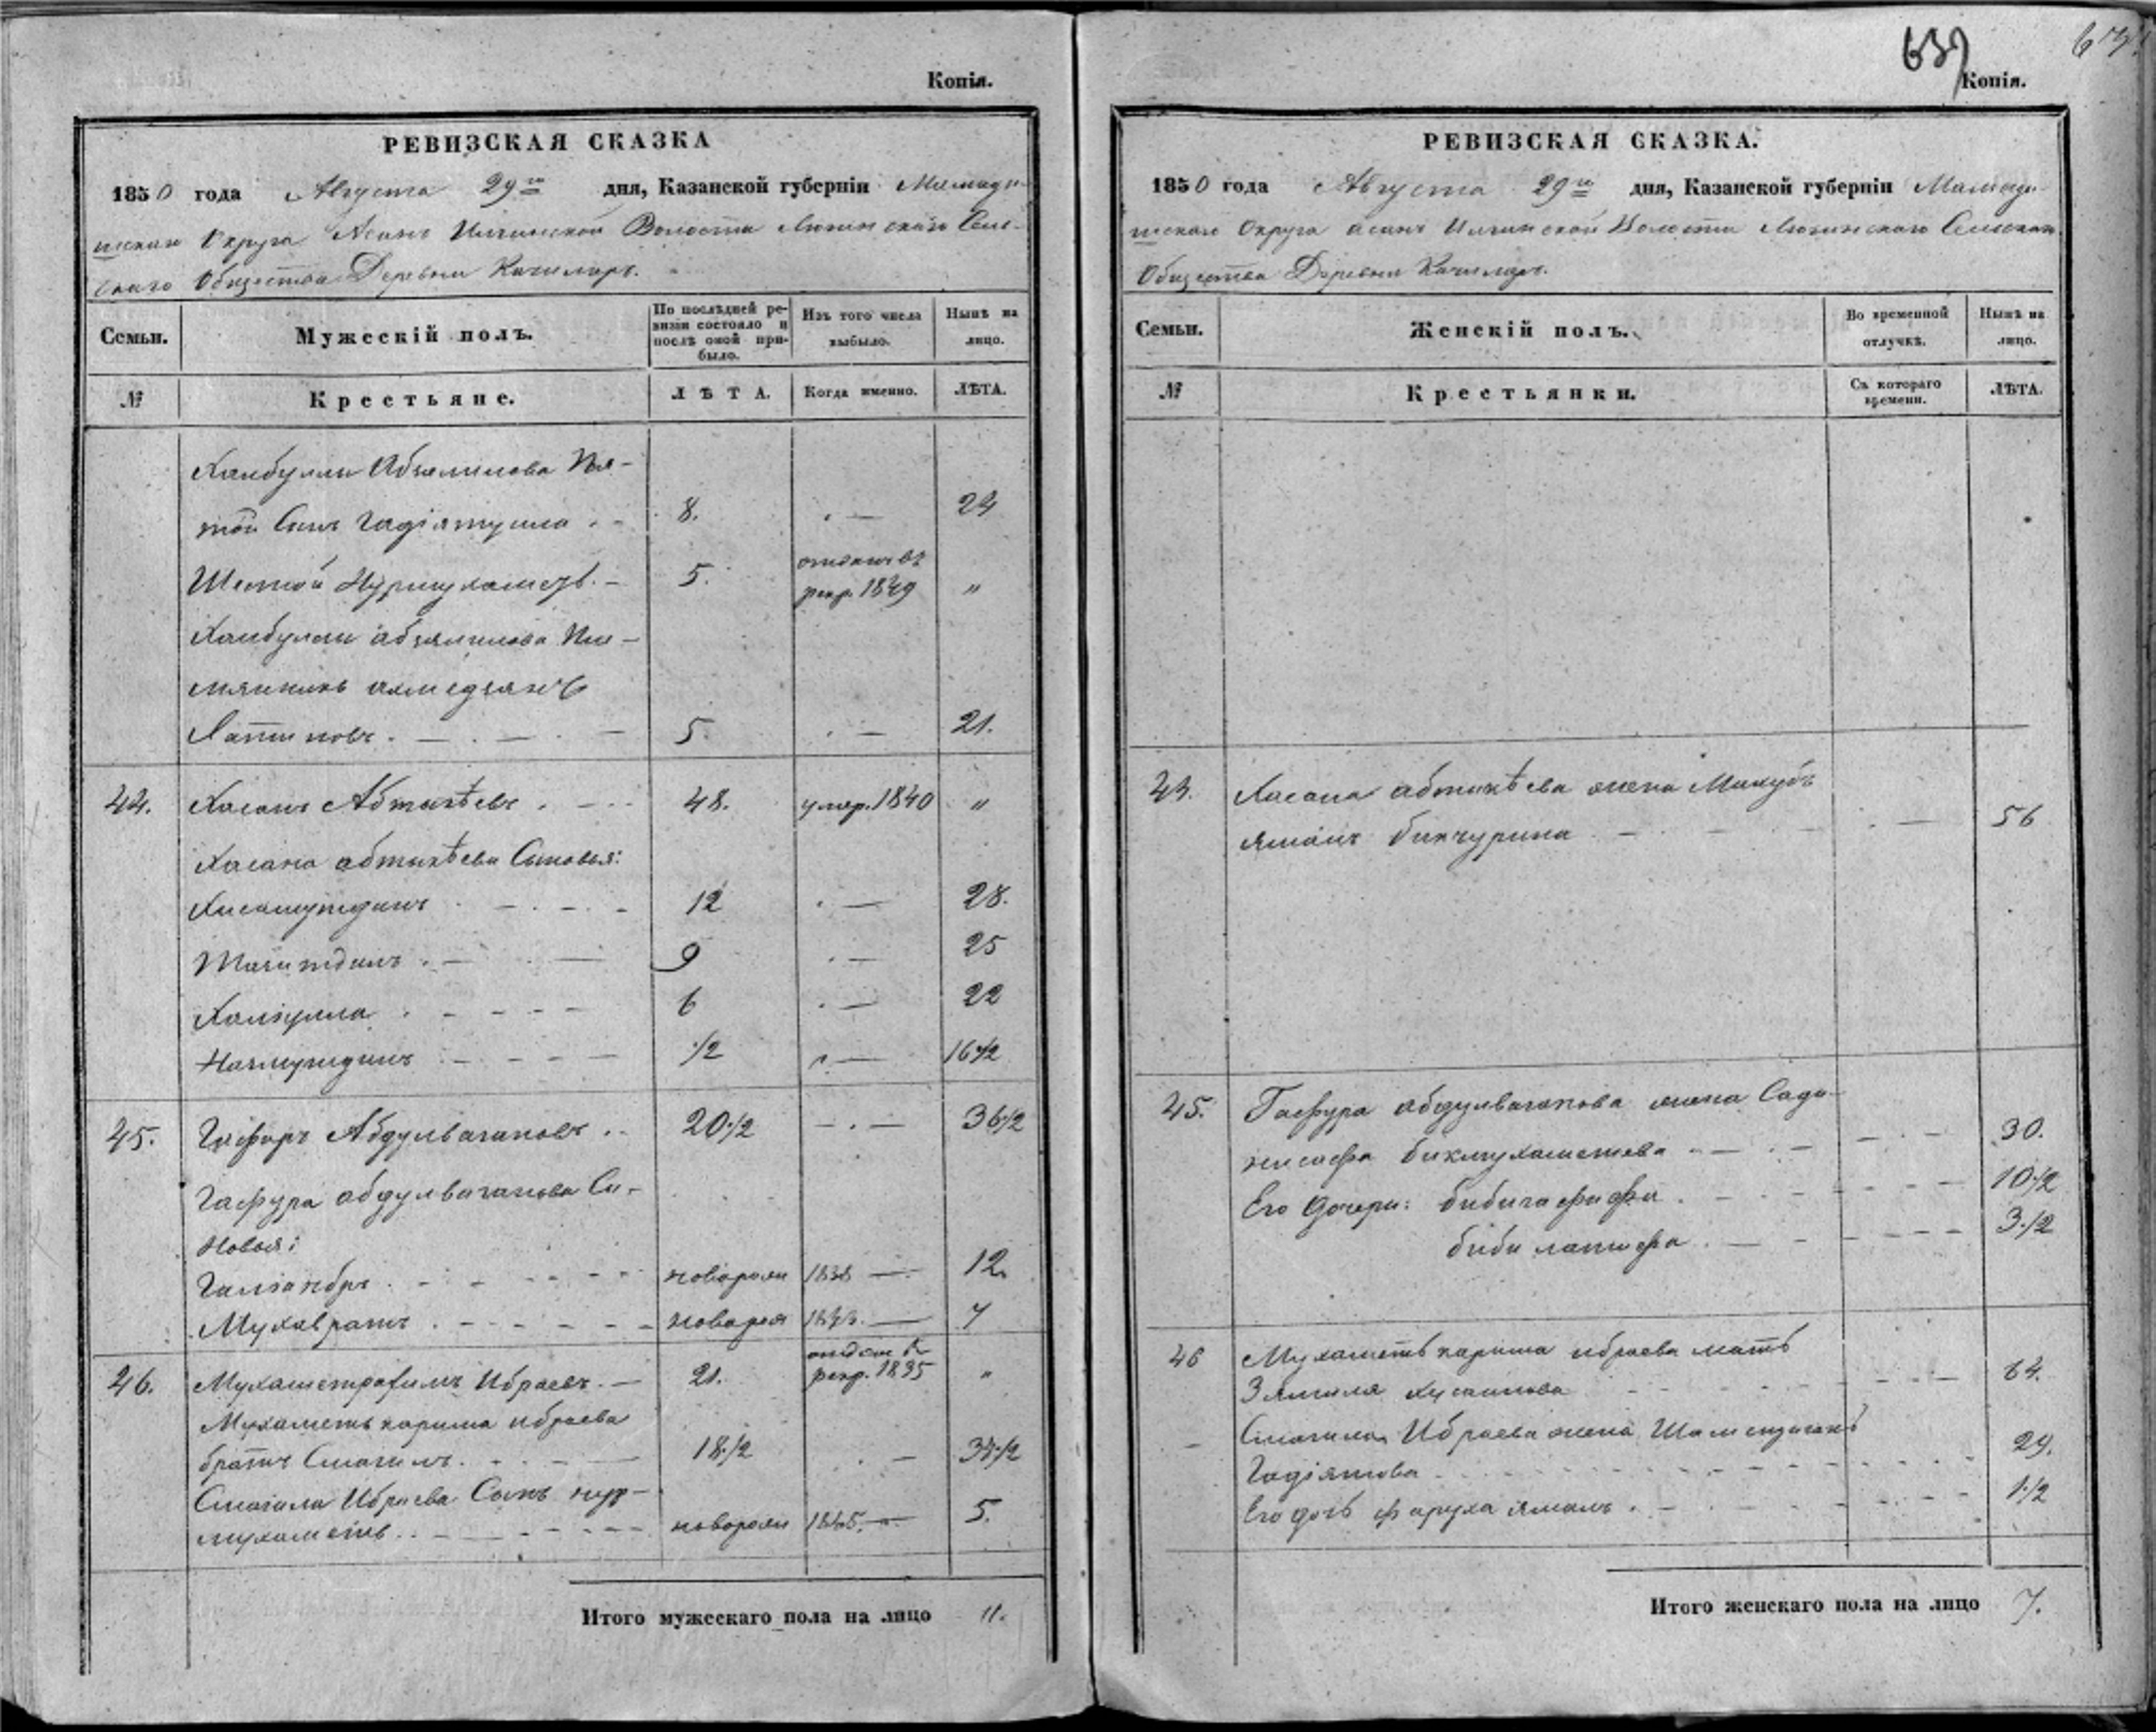 Копія.
РЕВИЗСКАЯ СКАЗКА
1850 года Августа 29го дня, Казанской губерніи Мамады-
шскаго Округа Асанъ Илгинской Волости Сель-
скаго Общества Деревни Качиляръ.
Семьи.
Мужескій полъ.
По послѣдней ре-
визіи состояло и
послѣ оной при-
было.
Изъ того числа
выбыло.
Нынѣ на
лицо.
№
Крестьяне.
ЛѢТА.
Когда именно.
ЛѢТА.
Хамбулли Абзялилова Пя-
той Сынъ Гадіятулла 8. — 24
отданъ въ
Шестой Нурмухаметъ. 5. рекр. 1849 "
Абзялилова Пле-
мянникъ Ахмедзянъ
Латиповъ. 5 — 21.
44. Хасанъ Абтикѣевъ 48. умер. 1840 "
Хасана Абтикѣева Сыновья:
Хисамутдинъ 12 — 28.
9 — 25
6 — 22
Назмутдинъ 1/2 — 16 1/2
45. Гафуръ Абдулвагаповъ 20 1/2 — 36 1/2
Гафура Абдулвагапова Сы-
новья:
новорож 1838 — 12
новорож — 7
отдан въ
46. Ибраевъ. 21. рекр. 1835 "
Мухаметькарима Ибраева
братъ Смагилъ. 18 1/2 — 34 1/2
Смагила Ибраева Сынъ Нур-
мухаметь новорож 1845. — 5.
Итого мужескаго пола на лицо 11.
639
Копія.
РЕВИЗСКАЯ СКАЗКА.
1850 года Августа 29го дня, Казанской губерніи Мамады-
шскаго Округа Асанъ Илгинской Волости Сельскаго
Общества Деревни Качиляръ.
Семьи.
Женскій полъ.
Во временной
отлучкѣ.
Нынѣ на
лицо.
№
Крестьянки.
Съ котораго
времени.
ЛѢТА.
44. Хасана Абтикѣева жена Махуб
ямалъ Бикчурина — 56
45. Гафура Абдулвагапова жена Сади-
нисафа Бикмухаметева — 30.
Его дочери: Бибигафифа 10 1/2
Биби латифа 3 1/2
46 Мухаметькарима Ибраева мать
Зямиля Хусаинова 64.
Смагила Ибраева жена
Гадіятова 29.
Его дочь Фаруха ямалъ. 1 1/2
Итого женскаго пола на лицо 7.